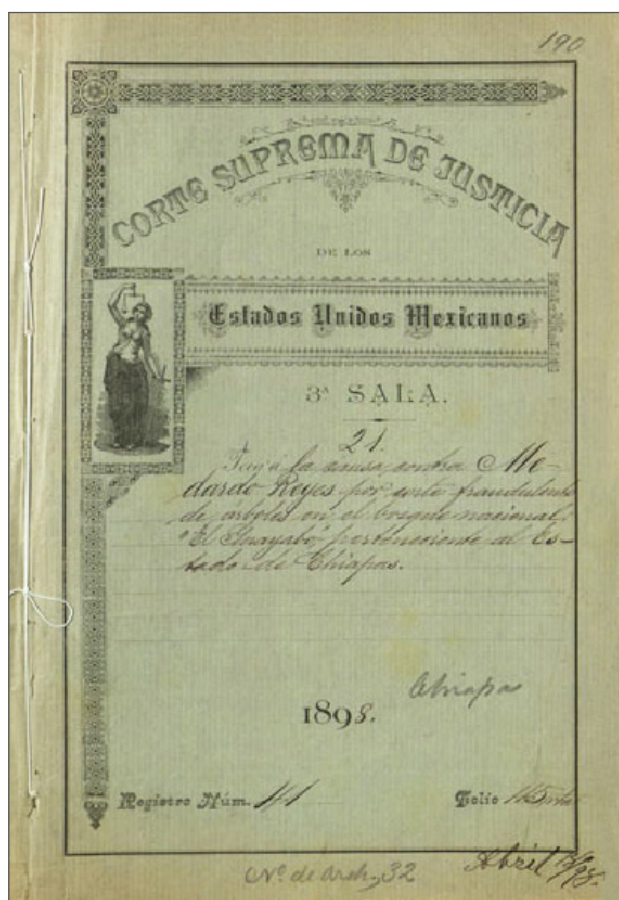 190
CORTE SUPREMA DE JUSTICIA
DE LOS
Estados Unidos Mexicanos
3ª SALA.
21.
la causa contra Me-
dardo Reyes por corte fraudulento
de arboles en el bosque nacional
"El Guayabo" perteneciente al Es-
tado de Chiapas.
Chiapas
1898.
Registro Núm. 141
Folio
Nº de arch, 32
Abril